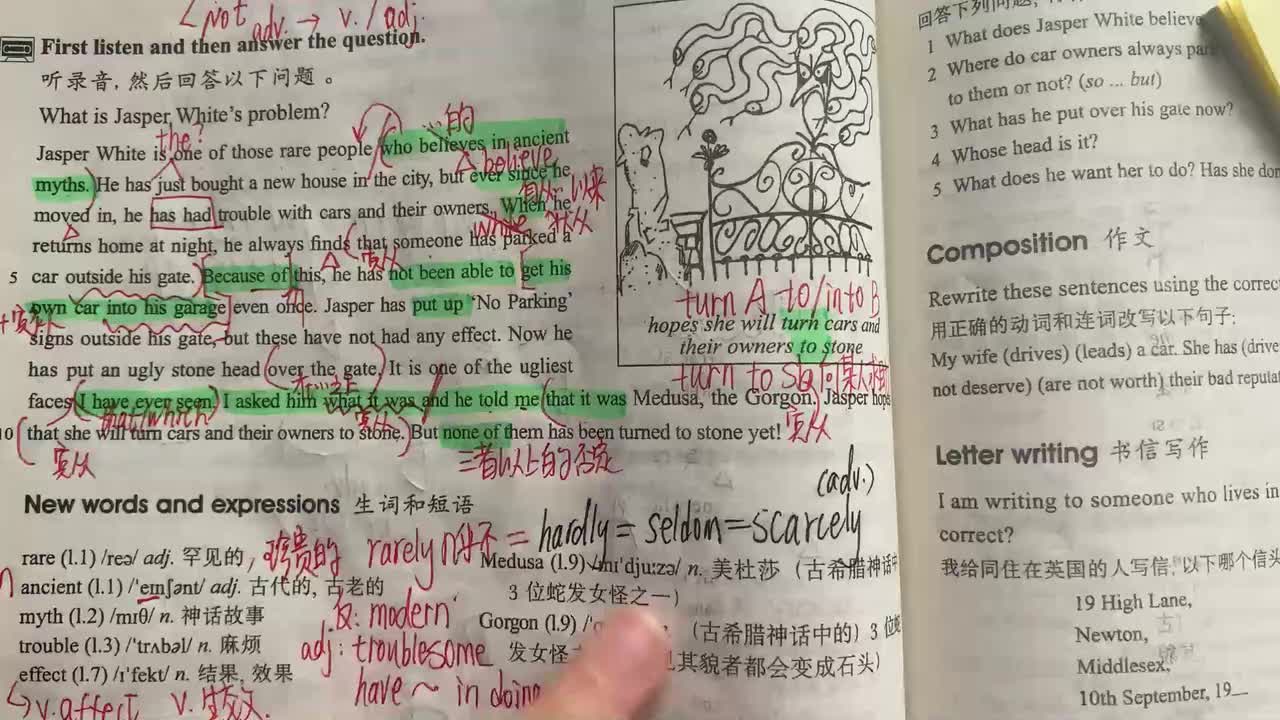 Not adv. → v. / adj.
First listen and then answer the question.
听录音，然后回答以下问题。
What is Jasper White's problem?
the?
的
Jasper White is one of those rare people who believes in ancient
believe
myths. He has just bought a new house in the city, but ever since he
自从以来
moved in, he has had trouble with cars and their owners. When he
while 状从
returns home at night, he always finds that someone has parked a
宾从
5 car outside his gate. Because of this, he has not been able to get his
own car into his garage even once. Jasper has put up 'No Parking'
signs outside his gate, but these have not had any effect. Now he
has put an ugly stone head over the gate. It is one of the ugliest
faces I have ever seen. I asked him what it was and he told me that it was Medusa, the Gorgon. Jasper hopes
that/which 宾从
10 that she will turn cars and their owners to stone. But none of them has been turned to stone yet!
宾从
宾从
三者以上的否定
turn A to/into B
hopes she will turn cars and
their owners to stone
turn to sb
New words and expressions 生词和短语
(adv.)
rare (l.1) /reə/ adj. 罕见的，珍贵的 rarely 几乎不 = hardly = seldom = scarcely
ancient (l.1) /ˈeɪnʃənt/ adj. 古代的, 古老的
反: modern
myth (l.2) /mɪθ/ n. 神话故事
trouble (l.3) /ˈtrʌbəl/ n. 麻烦
adj: troublesome
effect (l.7) /ɪˈfekt/ n. 结果, 效果
have ~ in doing
v. affect v.
Medusa (l.9) /mɪˈdjuːzə/ n. 美杜莎（古希腊神话中
3 位蛇发女怪之一）
Gorgon (l.9)
（古希腊神话中的）3 位蛇
发女怪
其貌者都会变成石头）
回答下列问题
1 What does Jasper White believe
2 Where do car owners always park
to them or not? (so ... but)
3 What has he put over his gate now?
4 Whose head is it?
5 What does he want her to do? Has she don
Composition 作文
Rewrite these sentences using the correct
用正确的动词和连词改写以下句子:
My wife (drives) (leads) a car. She has (drive
not deserve) (are not worth) their bad reputa
Letter writing 书信写作
I am writing to someone who lives in
correct?
我给同住在英国的人写信, 以下哪个信头
19 High Lane,
Newton,
Middlesex,
10th September, 19—